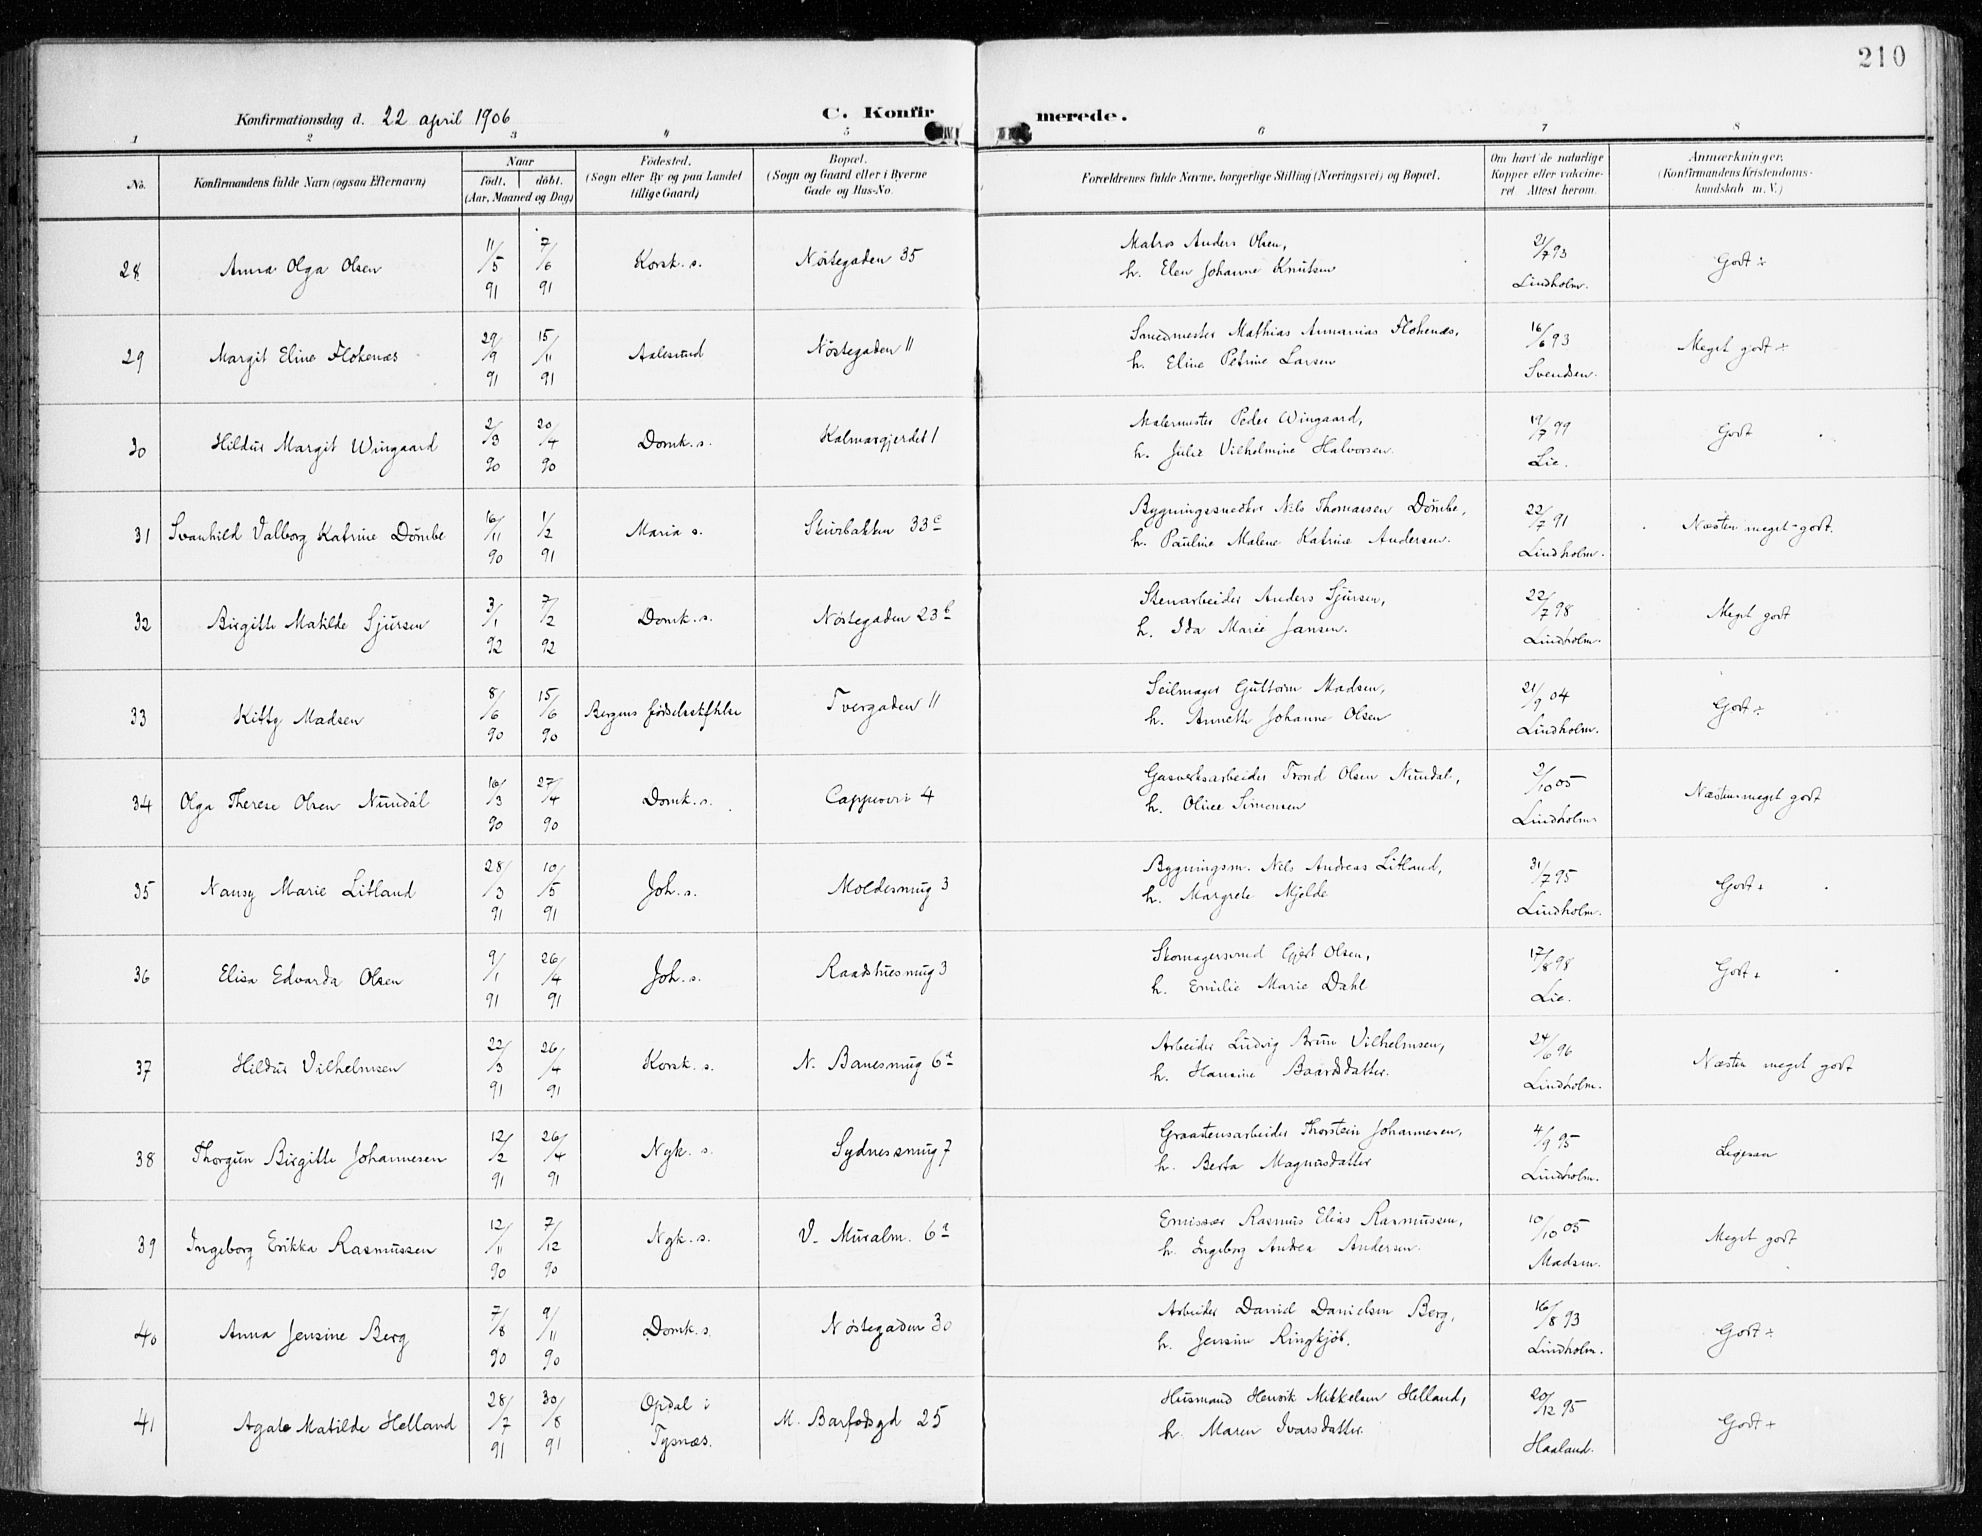 210
Konfirmationsdag d. 22 april 1906
C. Konfirmerede.
1 2 3 " 5 6 7 8
No. Konfirmandens fulde Navn (ogsaa Efternavn) Naar Født. døbt. (Aar, Maaned og Dag) Fødested. (Sogn eller By og paa Landet tillige Gaard) Bopæl. (Sogn og Gaard eller i Byerne Gade og Hus-No. Forældrenes fulde Navne, borgerlige Stilling (Næringsvei) og Bopæl. Om havt de naturlige Kopper eller vakcineret Attest herom. Anmærkninger. (Konfirmandens Kristendomskundskab m. V.)
28 Anna Olga Olsen 11/5 91 7/6 91 Korsk. s. Nøstegaden 35 Matros Anders Olsen, 21/7 93 Godt ÷
h. Elen Johanne Knutsen Lindholm.
29 Margit Eline Flokenæs 29/9 91 15/11 91 Aalesund Nøstegaden 11 Smedmester Mathias Annanias Flokenæs, 16/6 93 Meget godt ÷
h. Eline Petrine Larsen Svendsen.
30 Hildur Margit Wingaard 2/3 90 20/4 90 Domk. s. Kalmargjerdet 1 Malermester Peder Wingaard, 19/7 99 Godt
h. Julie Vilhelmine Halvorsen. Lie.
31 Svanhild Valborg Katrine Dømbe 16/11 90 1/2 91 Maria s. Skivebakken 33c Bygningssnedker Nils Thomassen Dømbe, 22/7 91 Næsten meget godt.
h. Pauline Malene Katrine Andersen. Lindholm.
32 Birgitte Matilde Sjursen 3/1 92 7/2 92 Domk. s. Nøstegaden 23b Stenarbeider Anders Sjursen, 22/7 98 Meget godt
h. Ida Marie Jansen. Lindholm.
33 Kitty Madsen 8/6 90 15/6 90 Bergens fødselsstiftelse Tvergaden 11 Seilmager Guttorm Madsen, 21/9 04 Godt ÷
h. Anneth Johanne Olsen Lindholm.
34 Olga Therese Olsen Nundal 16/3 90 27/4 90 Domk. s. 4 Gasverksarbeider Trond Olsen Nundal, 2/10 05 Næsten meget godt
h. Oline Simonsen Lindholm
35 Nansy Marie Litland 28/3 91 10/5 91 Joh. s. Moldesmug 3 Bygningsm. Nils Andreas Litland, 31/7 95 Godt +
h. Margrete Mjelde Lindholm.
36 Elisa Edvarda Olsen 9/1 91 26/4 91 Joh. s. Raadstuesmug 3 Skomagersvend Gjert Olsen, 17/8 98 Godt +
h. Emilie Marie Dahl Lie.
37 Hildur Vilhelmsen 22/3 91 26/4 91 Korsk. s. N. Banesmug 6a Arbeider Ludvig Brun Vilhelmsen, 24/6 96 Næsten meget godt
h. Hansine Baardsdatter. Lindholm.
38 Thorgun Birgitte Johannesen 12/2 91 26/4 91 Nyk. s. Sydnessmug 7 Graastensarbeider Thorstein Johannesen, 4/9 95 Ligesaa
h. Berta Magnusdatter Lindholm.
39 Ingeborg Erikka Rasmussen 12/11 90 7/12 90 Nyk. s. V. Muralm. 6a Emissær Rasmus Elias Rasmussen, 10/10 05 Meget godt
h. Ingeborg Andrea Andersen. Madsen.
40 Anna Jensine Berg 7/8 90 9/11 90 Domk. s. Nøstegaden 30 Arbeider Daniel Danielsen Berg, 16/8 93 Godt ÷
h. Jensine Ringkjøb. Lindholm.
41 Agate Matilde Helland 28/7 91 30/8 91 Opdal i Tysnæs. M. Barfodsgd 25 Husmand Henrik Mikkelsen Helland, 20/12 95 Godt +
h. Maren Ivarsdatter. Haaland.